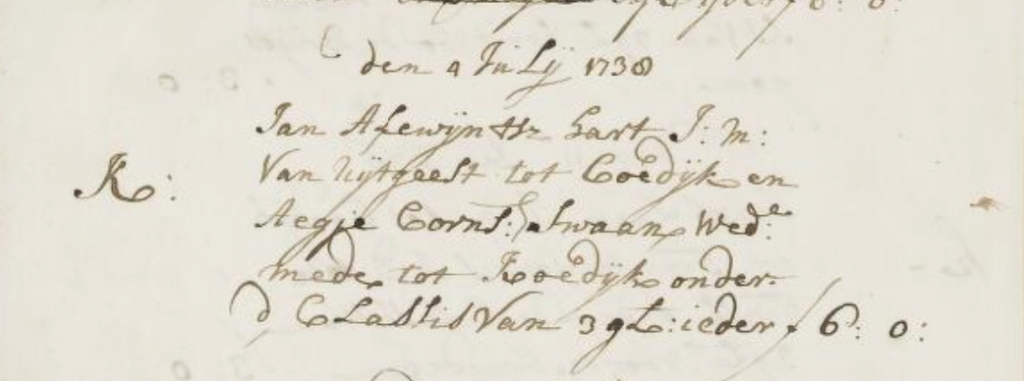 den 4 Julij 1738
Jan Afewijntsz hart J: m:
K: Van Uijtgeest tot Coedijk en
Aegje Corns: Swaan Wed:e
mede tot Koedijk onder
d Classis Van 3 gL: ieder f 6: 0: